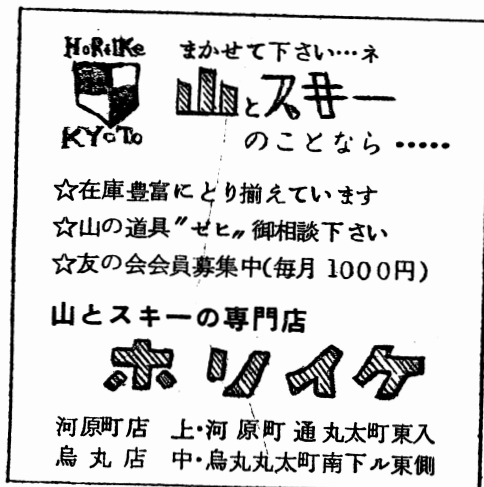 HoRiIKe
KYoTo
まかせて下さい…ネ
山とスキー
のことなら・・・・・
☆在庫豊富にとり揃えています
☆山の道具〝ゼヒ〟御相談下さい
☆友の会会員募集中(毎月 1000円)
山とスキーの専門店
ホリイケ
河原町店 上・河原町通丸太町東入
烏丸店 中・烏丸丸太町南下ル東側